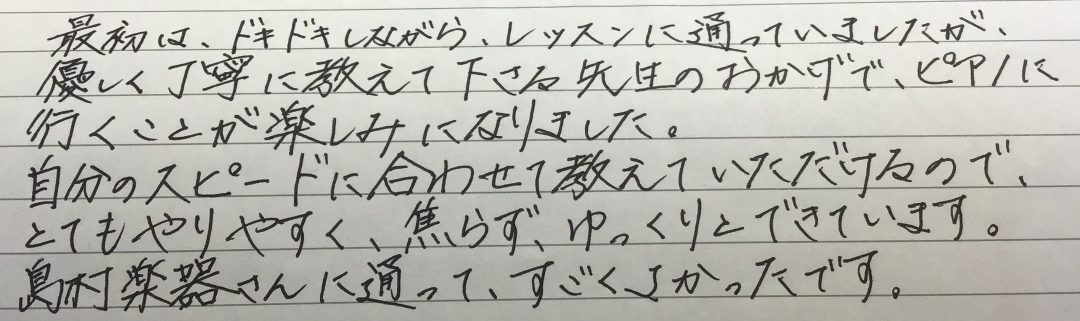 最初は、ドキドキしながら、レッスンに通っていましたが、
優しく丁寧に教えて下さる先生のおかげで、ピアノに
行くことが楽しみになりました。
自分のスピードに合わせて教えていただけるので、
とてもやりやすく、焦らず、ゆっくりとできています。
島村楽器さんに通って、すごくよかったです。